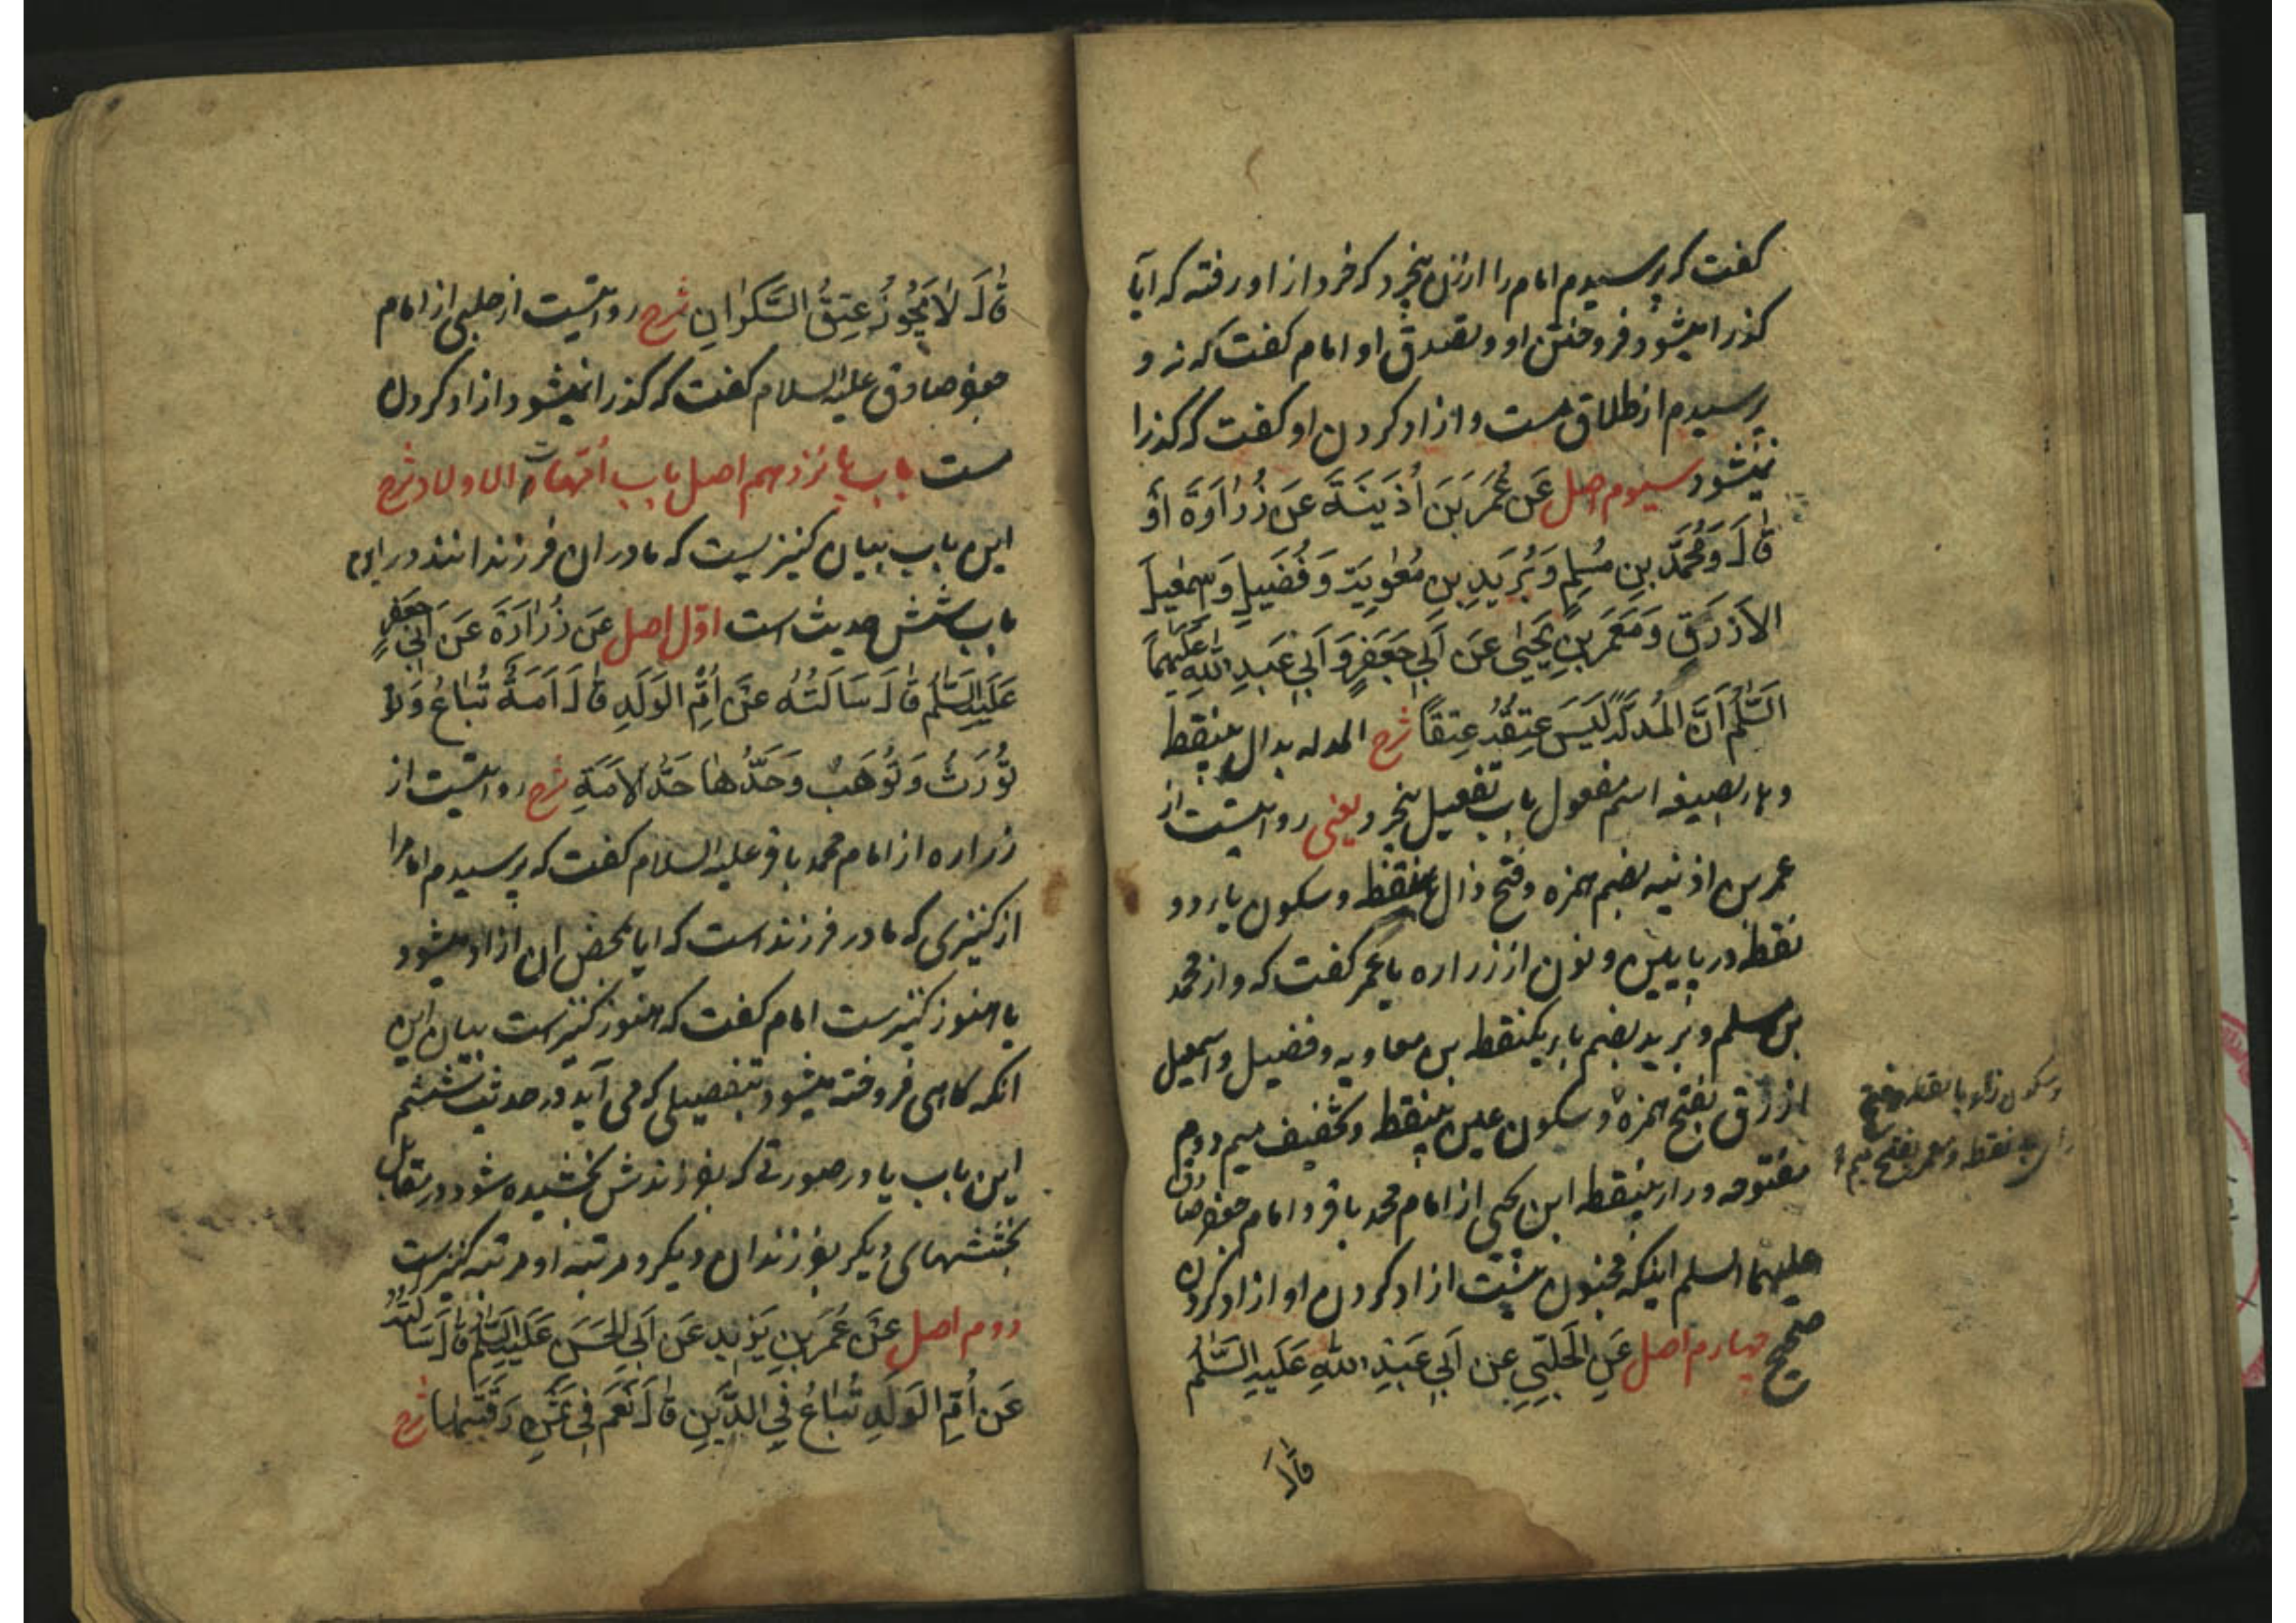 گفت که پرسیدم امام را از زن بیخرد که خرد از او رفته که ایا
گذرا میشود فروختن او و تصدق او امام گفت که نه و
پرسیدم از طلاق مست و ازاد کردن او گفت که گذرا
نمیشود سیوم اصل عَن عُمَرَ بنَ اُذَینَةَ عَن زُرٰارَةَ اَو
قٰالَ وَ مُحَمَّدِ بنِ مُسلِمٍ وَ بُرَیدِ بنِ مُعٰوِیَةَ وَ فُضَیلٍ وَ اِسمٰعیلَ
الاَزرَقِ وَ مَعمَرِ بنِ یَحیٰی عَن اَبی جَعفَرٍ وَ اَبی عَبدِ اللّٰهِ عَلَیهِمَا
السَّلٰمُ اَنَّ المُدَلَّهَ لَیسَ عِتقُهُ عِتقًا شرح المدله بدال بینقطه
و هاء بصیغه اسم مفعول باب تفعیل بیخرد یعنی روایتست از
عمر بن اذینه بضم همزه و فتح ذال بانقطه و سکون یاء دو
نقطه در پایین و نون از زراره یا عمر گفت که و از محمد
بن مسلم و برید بضم باء یکنقطه بن معاویه و فضیل و اسمعیل
ازرق بفتح همزه و سکون عین بینقطه و تخفیف میم دوم
وسکون زاء بانقطه و فتح
راء بینقطه و معمر بفتح میم
مفتوحه و راء بینقطه ابن یحیی از امام محمد باقر و امام جعفر صادق
علیهما السلم اینکه مجنون نیست ازاد کردن او ازاد کردن
صحیح چهارم اصل عَنِ الحَلَبِیِّ عَن اَبی عَبدِ اللّٰهِ عَلَیهِ السَّلٰمُ
قٰالَ
قٰالَ لاٰ یَجُوزُ عِتقُ السَّکرٰانِ شرح روایتست از حلبی از امام
جعفر صادق علیه السلام گفت که گذرا نمیشود ازاد کردن
مست باب پانزدهم اصل باب اُمّهات الاولاد شرح
این باب بیان کنیزیست که مادران فرزندانند در این
باب شش حدیث است اوّل اصل عَن زُرٰارَةَ عَن اَبی جَعفَرٍ
عَلَیهِ السَّلٰمُ قٰالَ سَاَلتُهُ عَن اُمِّ الوَلَدِ قٰالَ اَمَةٌ تُبٰاعُ وَ
تُورَثُ وَ تُوهَبُ وَ حَدُّهٰا حَدُّ الاَمَةِ شرح روایتست از
زراره از امام محمد باقر علیه السلام گفت که پرسیدم امام را
از کنیزی که مادر فرزند است که ایا بمحض ان ازاد میشود
یا هنوز کنیزست امام گفت که هنوز کنیزست بیان این
انکه گاهی فروخته میشود بتفصیلی که می آید در حدیث ششم
این باب یا در صورتی که بفرزندش بخشیده شود در تقابل
بخششهای دیگر بفرزندان دیگر و مرتبه او مرتبه کنیزست
دوم اصل عَن عُمَرَ بنِ یَزیدَ عَن اَبی الحَسَنِ عَلَیهِ السَّلٰمُ قٰالَ سَاَلتُهُ
عَن اُمِّ الوَلَدِ تُبٰاعُ فِی الدَّینِ قٰالَ نَعَم فی ثَمَنِ رَقَبَتِهٰا شرح